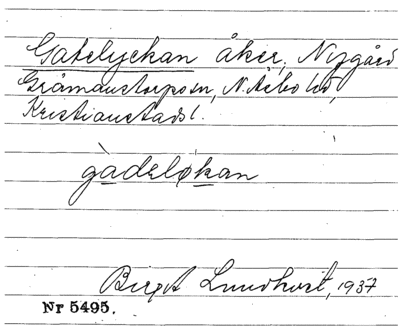 Gatelyckan åker, Nygård
Gråmanstorps sn, N. Åsbo hd,
Kristianstads l.
gàdeløkan
Birgit Lundkvist, 1937
Nr 5495.